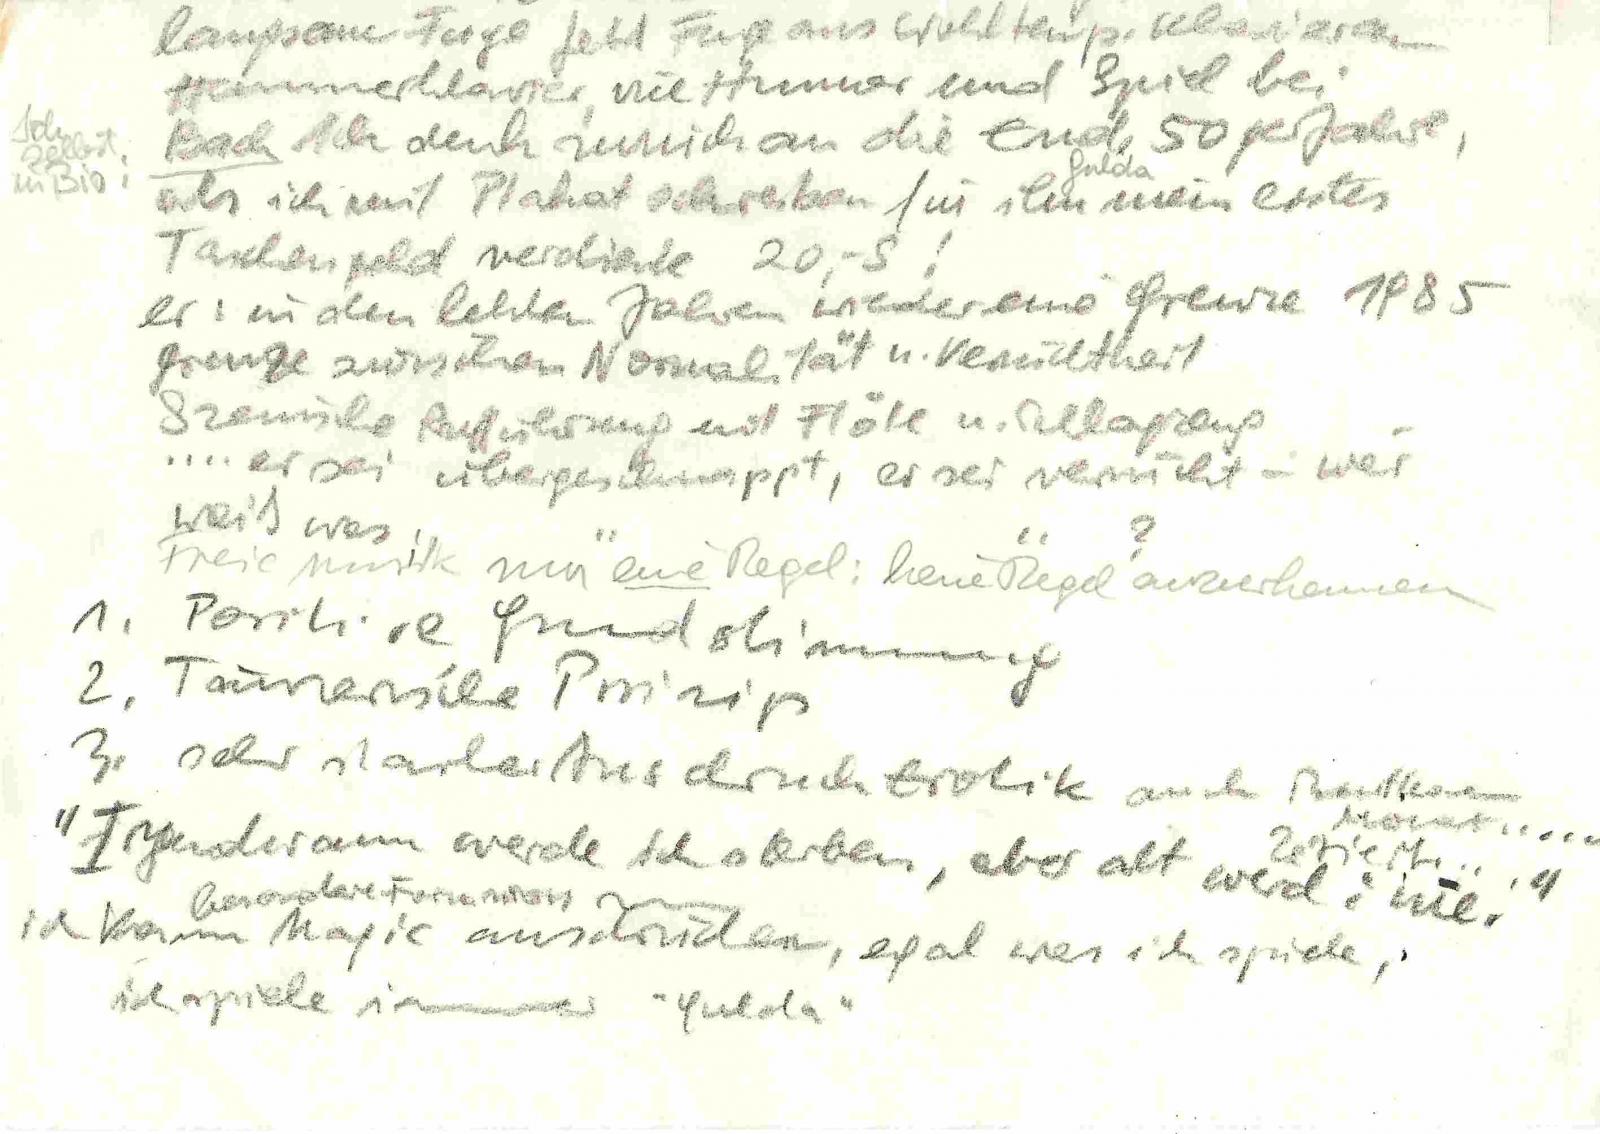 langsame Fuge jetzt Fuge aus Wohltemp. Klavier am
Hammerklavier, wie Humor und Spiel bei
Ich
selbst
in Bio!
Bach Ich denk zurück an die End 50ger Jahre,
Gulda
als ich mit Plakat schreiben für ihn mein erstes
Taschengeld verdiente 20,-S!
er: in den letzten Jahren wieder eine Grenze 1985
Grenze zwischen Normalität u. Verrücktheit
Szenische Aufführung mit Flöte u. Schlagzeug
.... er sei übergeschnappt, er sei verrückt - wer
weiß was.
Freie Musik nur eine Regel: keine Regel anzuerkennen
?
1. Positive Grundstimmung
2. Tänzerische Prinzip
3. sehr starker Ausdruck Erotik auch
"Irgendwann werde ich sterben, aber alt werd i nie!"
besondere
ich kann Magie ausdrücken, egal was ich spiele,
ich spiele immer "Gulda"